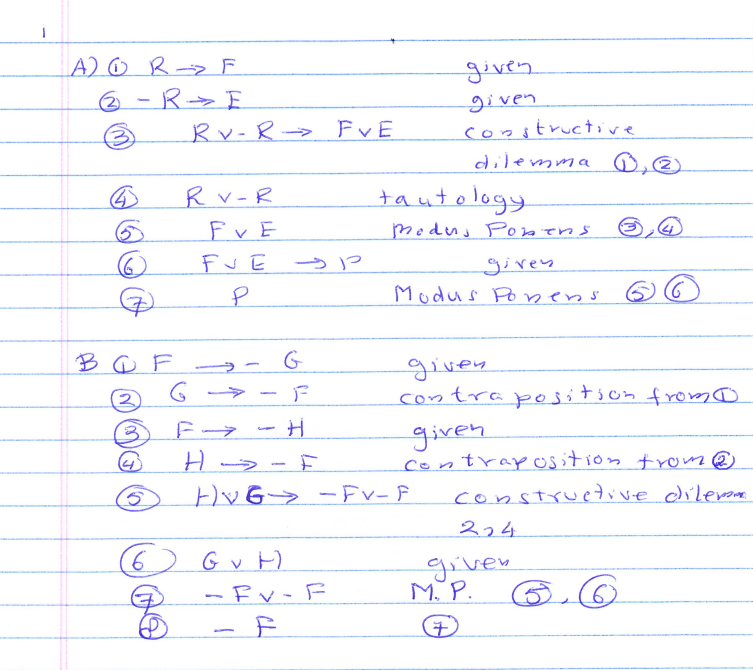 1
A) ① R → F given
② - R → E given
③ R v - R → F v E constructive
dilemma ①, ②
④ R v - R tautology
⑤ F v E Modus Ponens ③, ④
⑥ F v E → P given
⑦ P Modus Ponens ⑤ ⑥
B ① F → - G given
② G → - F contraposition from ①
③ F → - H given
④ H → - F contraposition from ②
⑤ H v G → - F v - F constructive dilemma
2, 4
⑥ G v H given
⑦ - F v - F M. P. ⑤, ⑥
⑧ - F ⑦